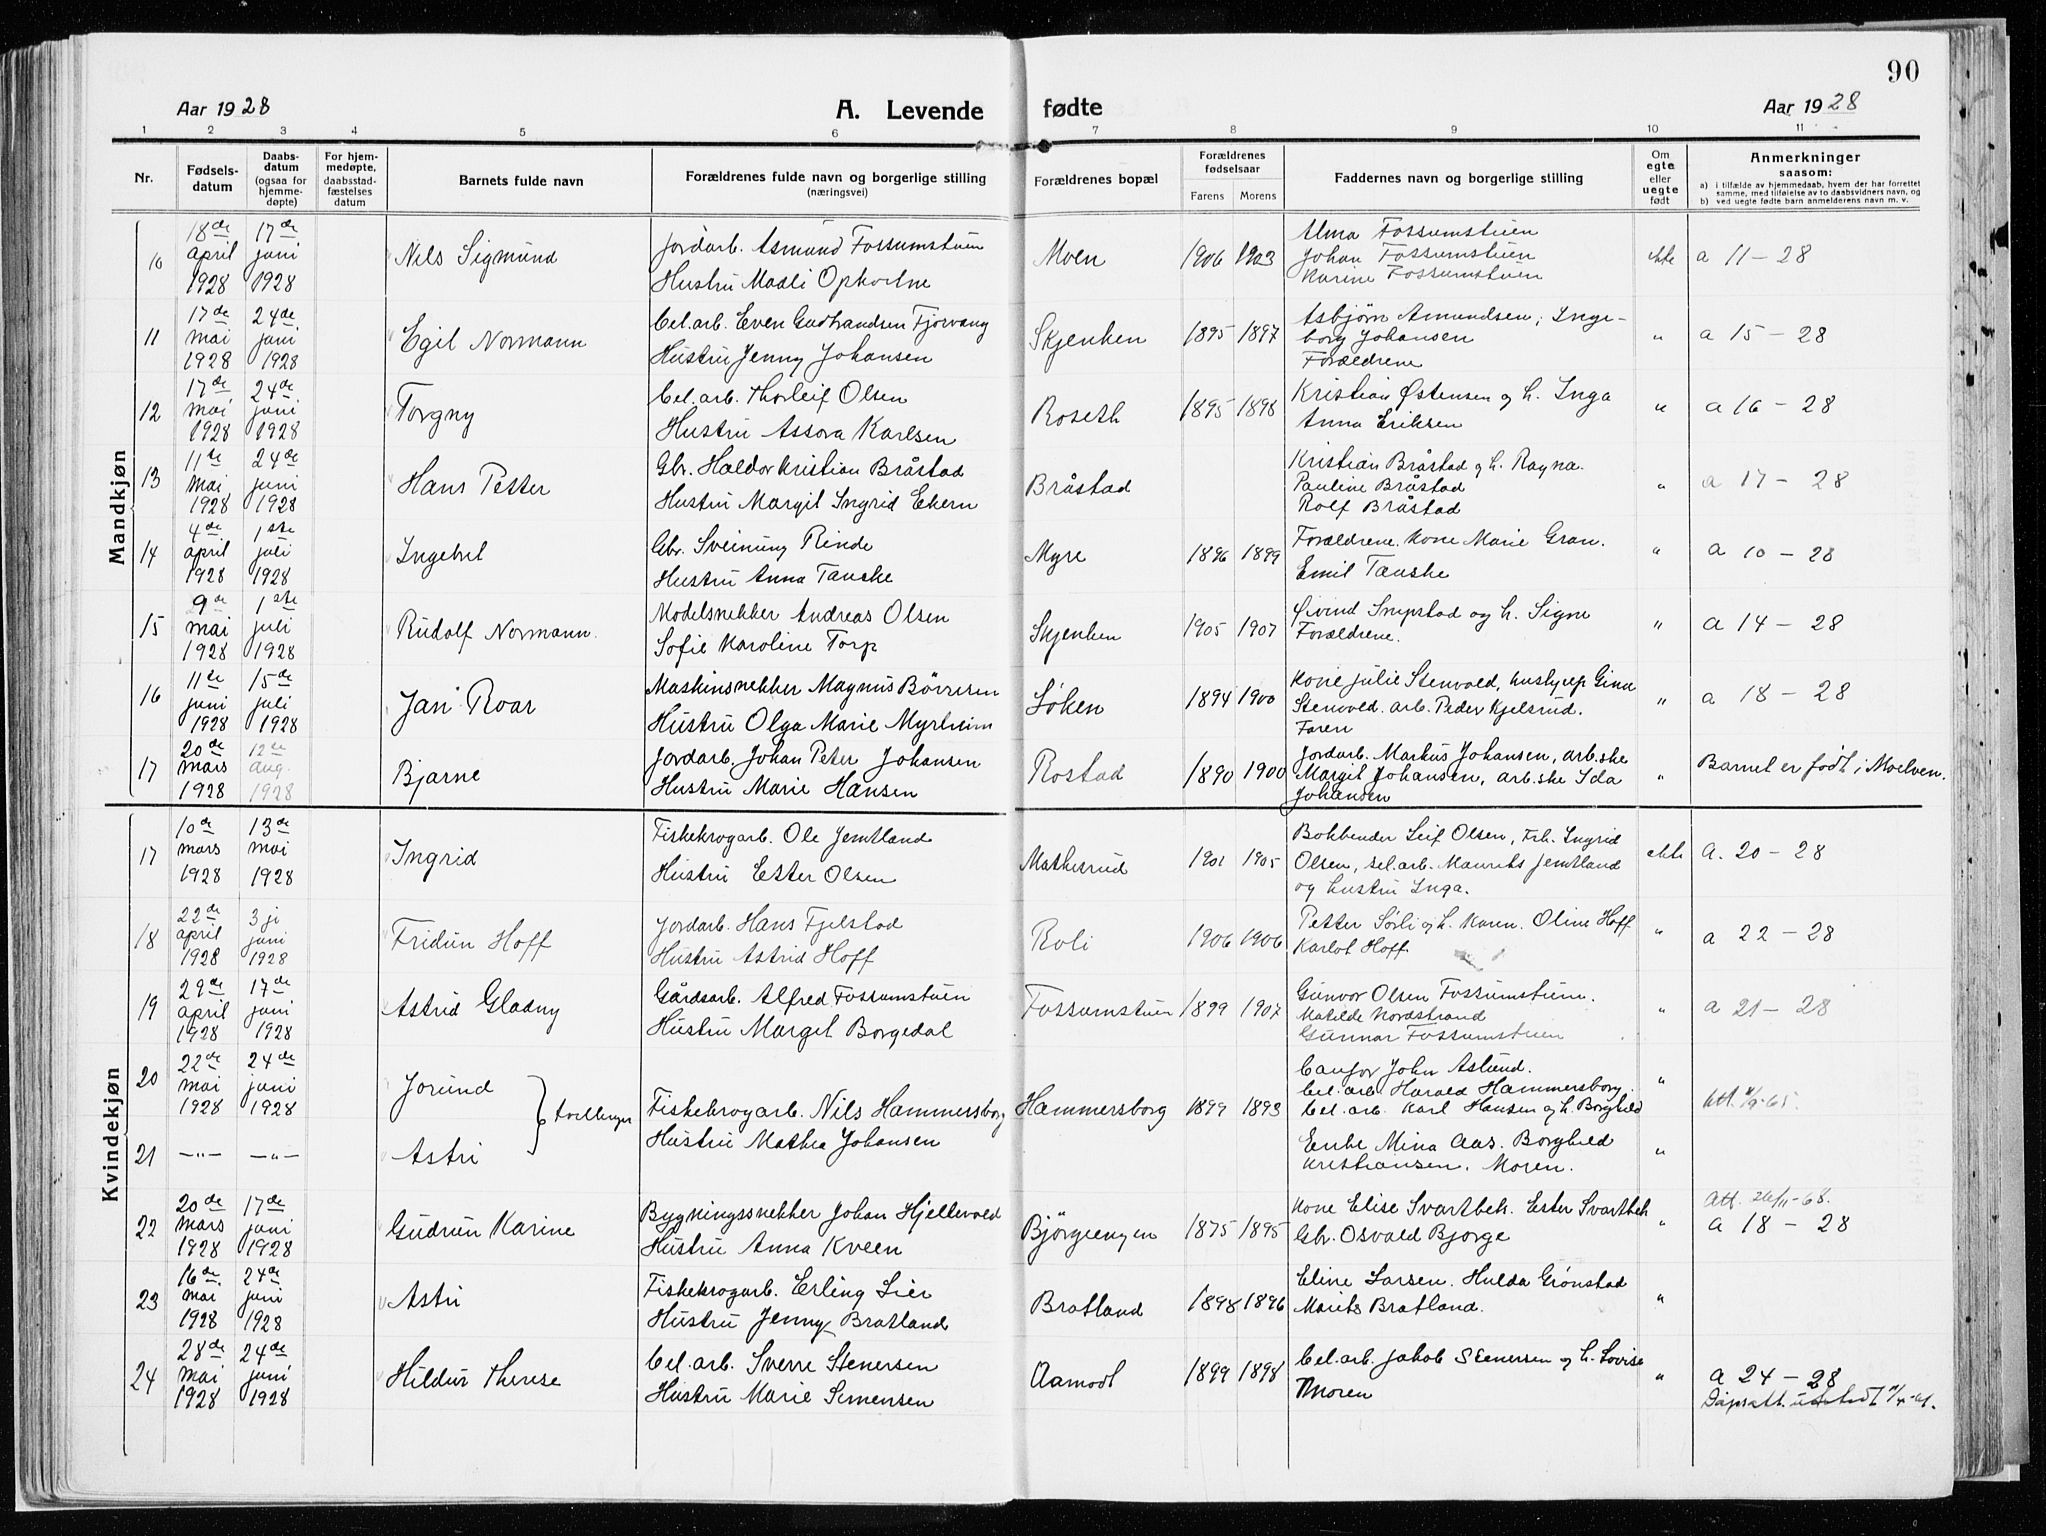 90
Aar 1928
A. Levende fødte
Aar 1928
1 2 3 4 5 6 7 8 9 10 11
Nr.
Fødsels-
datum
Daabs-
datum
(ogsaa for
hjemme-
døpte)
For hjem-
medøpte,
daabsstad-
fæstelses
datum
Barnets fulde navn
Forældrenes fulde navn og borgerlige stilling
(næringsvei)
Forældrenes bopæl
Forældrenes
fødselsaar
Farens Morens
Faddernes navn og borgerlige stilling
Om
egte
eller
uegte
født
Anmerkninger
saasom:
a) i tilfælde av hjemmedaab, hvem der har forrettet
samme, med tilføielse av to daabsvidners navn, og
b) ved uegte fødte barn anmelderens navn m. v.
Mandkjøn
10 18de april 1928 17de juni 1928 Nils Sigmund
Jordarb. Asmund Fossumstuen
Hustru Madli Opkvitne
Moen 1906 1903
Alma Fossumstuen
Johan Fossumstuen
Karine Fossumstuen
ekte a 11 - 28
11 17de mai 1928 24de juni 1928 Egil Normann
Cel.arb. Even Gudbrandsen Fjorvang
Hustru Jenny Johansen
Skjenken 1895 1897
Asbjørn Amundsen, Inge-
borg Johansen
Forældrene
" a 15 - 28
12 17de mai 1928 24de juni 1928 Torgny
Cel.arb. Thorleif Olsen
Hustru Assora Karlsen
Roseth 1895 1898
Kristian Østensen og h. Inga
Anna Eriksen
" a 16 - 28
13 11te mai 1928 24de juni 1928 Hans Petter
Gbr. Haldor Kristian Bråstad
Hustru Margit Ingrid Ekern
Bråstad
Kristian Bråstad og h. Ragna.
Pauline Bråstad
Rolf Bråstad
" a 17 - 28
14 4de april 1928 1ste juli 1928 Ingebret
Gbr. Sveinung Rinde
Hustru Anna Tanske
Myre 1896 1899
Forældrene. Kone Marie Gran.
Emil Tanske
" a 10 - 28
15 9de mai 1928 1ste juli 1928 Rudolf Normann.
Modelsnekker Andreas Olsen
Sofie Karoline Torp
Skjenken 1905 1907
Øivind Snipstad og h. Signe
Forældrene.
" a 14 - 28
16 11te juni 1928 15de juli 1928 Jan Roar
Maskinsnekker Magnus Børresen
Hustru Olga Marie Myrheim
Løken 1894 1900
Kone Julie Stenvold, Gina
Stenvold. arb. Peder Kjelsrud.
Faren
" a 18 - 28
17 20de mars 1928 12te aug. 1928 Bjarne
Jordarb. Johan Peter Johansen
Hustru Marie Hansen
Rostad 1890 1900
Jordarb. Markus Johansen, arb.ske
Margit Johansen, arb.ske Ida
Johansen
" Barnet er født i Moelven.
Kvindekjøn
17 10de mars 1928 13de mai 1928 Ingrid
Fiskekrogarb. Ole Jemtland
Hustru Ester Olsen
Mathesrud 1901 1905
Bokbender Leif Olsen, Frk. Ingrid
Olsen, sel.arb. Maurits Jemtland
og hustru Inga.
ekte A. 20 - 28
18 22de april 1928 3dje juni 1928 Fridun Hoff
Jordarb. Hans Fjelstad
Hustru Astrid Hoff
Roli 1906 1906
Petter Sørli og h. Karen. Oline Hoff
Karlot Hoff
" a 22 - 28
19 29de april 1928 17de juni 1928 Astrid Gladny
Gårdsarb. Alfred Fossumstuen
Hustru Margit Borgedal
Fossumstuen 1899 1907
Gunvor Olsen Fossumstuen.
Matilde Nordstrand
Gunnar Fossumstuen
" a 21 - 28
20 22de mai 1928 24de juni 1928 Jorund
tvillinger
Fiskekrogarb. Nils Hammersborg
Hustru Mathea Johansen
Hammersborg 1899 1893
John Aslund.
Cel.arb. Harald Hammersborg.
Cel.arb. Karl Hansen og h. Borghild
"
21 —"— —"— Astri
Enke Mina Aas. Borghild
Kristiansen. Moren.
"
22 20de mars 1928 17de juni 1928 Gudrun Karine
Bygningssnekker Johan Hjellevold
Hustru Anna Kveen
Bjørgeengen 1875 1895
Kone Elise Svartbek. Ester Svartbek
Gbr. Osvald Bjørge
" Att. 26/11-68.
a 18 - 28
23 16de mai 1928 24de juni 1928 Astri
Fiskekrogarb. Erling Lier
Hustru Jenny Bratland
Bratland 1898 1896
Eline Larsen. Hulda Grønstad
Marits Bratland.
"
24 28de mai 1928 24de juni 1928 Hildur Therese
Cel.arb. Sverre Stenersen
Hustru Marie Simensen
Aamodt 1899 1898
Cel.arb. Jakob Stenersen og h. Lovise
Moren
" a 24 - 28